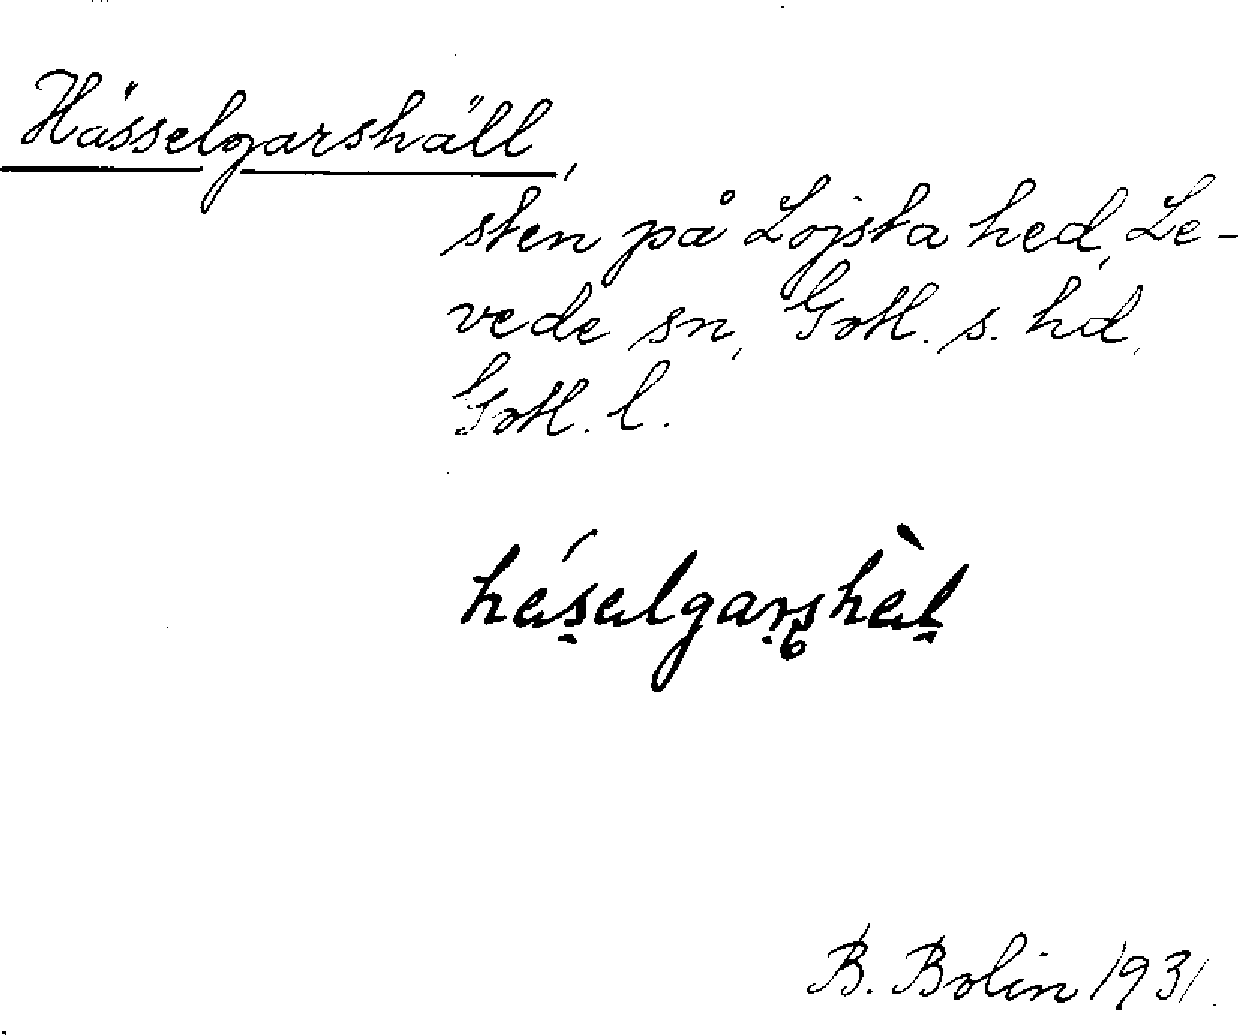 Hässelgarshäll,
sten på Lojsta hed, Le-
vede sn, Gotl. s. hd,
Gotl. l.
hésalgarshèl
B. Bolin 1931.